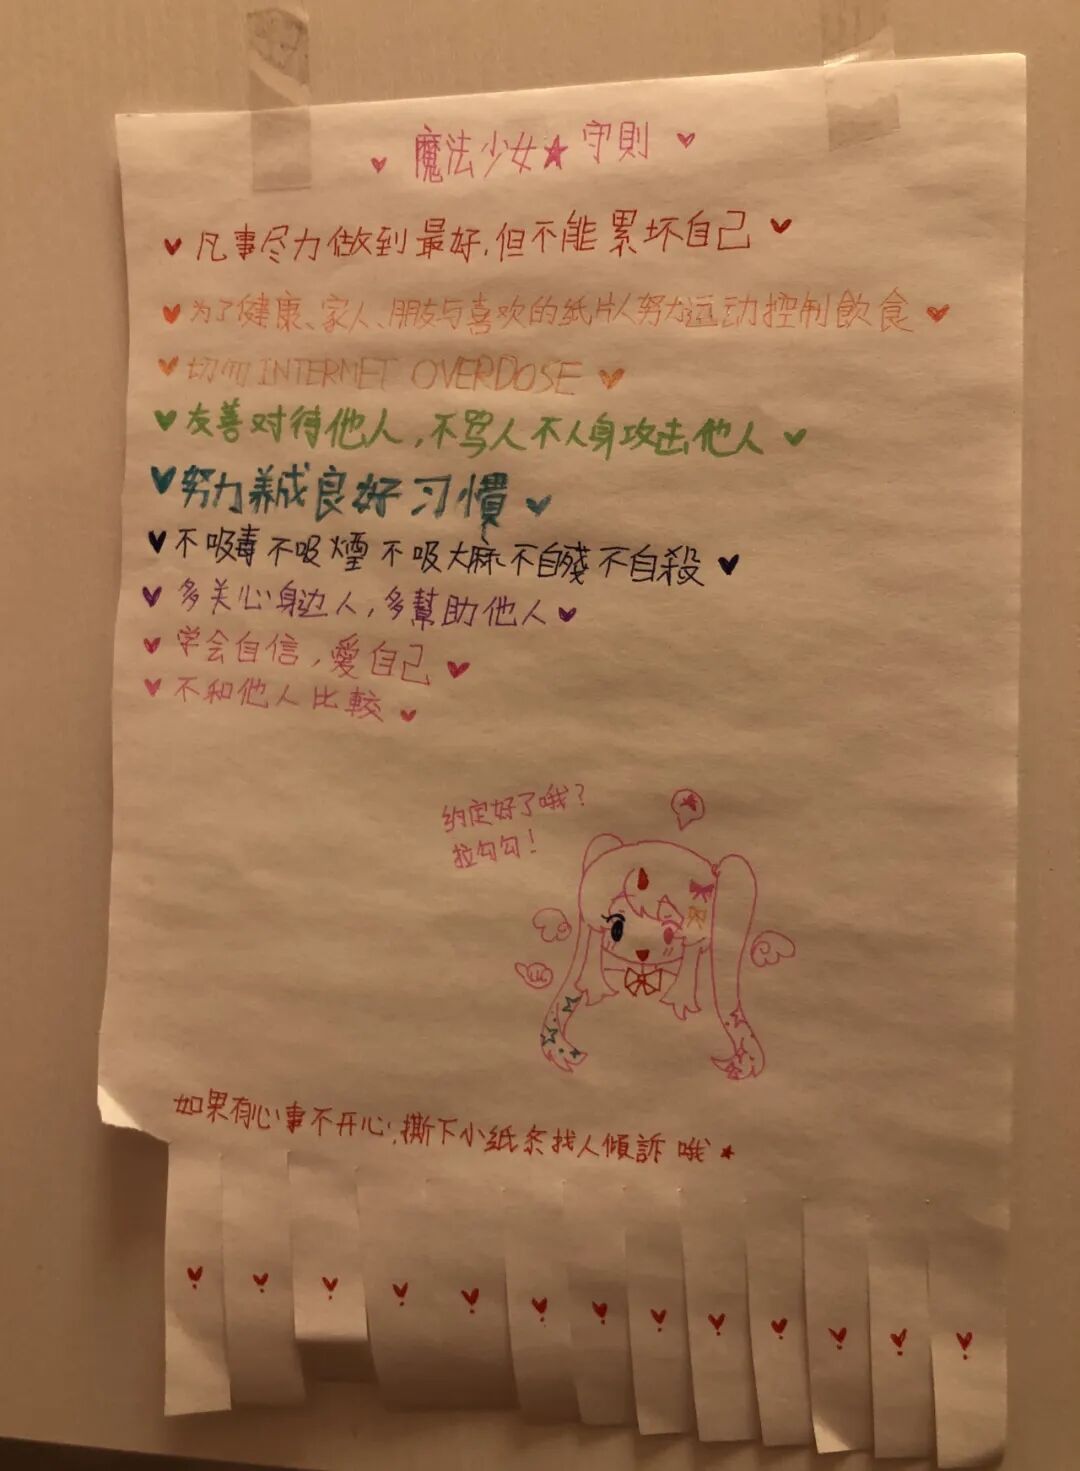 魔法少女★守則
凡事尽力做到最好,但不能累坏自己
为了健康、家人、朋友与喜欢的纸片人努力运动控制飲食
切勿 INTERNET OVERDOSE
友善对待他人,不骂人不人身攻击他人
努力养成良好习慣
不吸毒 不吸煙 不吸大麻 不自殘 不自殺
多关心身边人,多幫助他人
学会自信,愛自己
不和他人比較
约定好了哦?
拉勾勾!
如果有心事不开心,撕下小纸条找人傾訴哦★